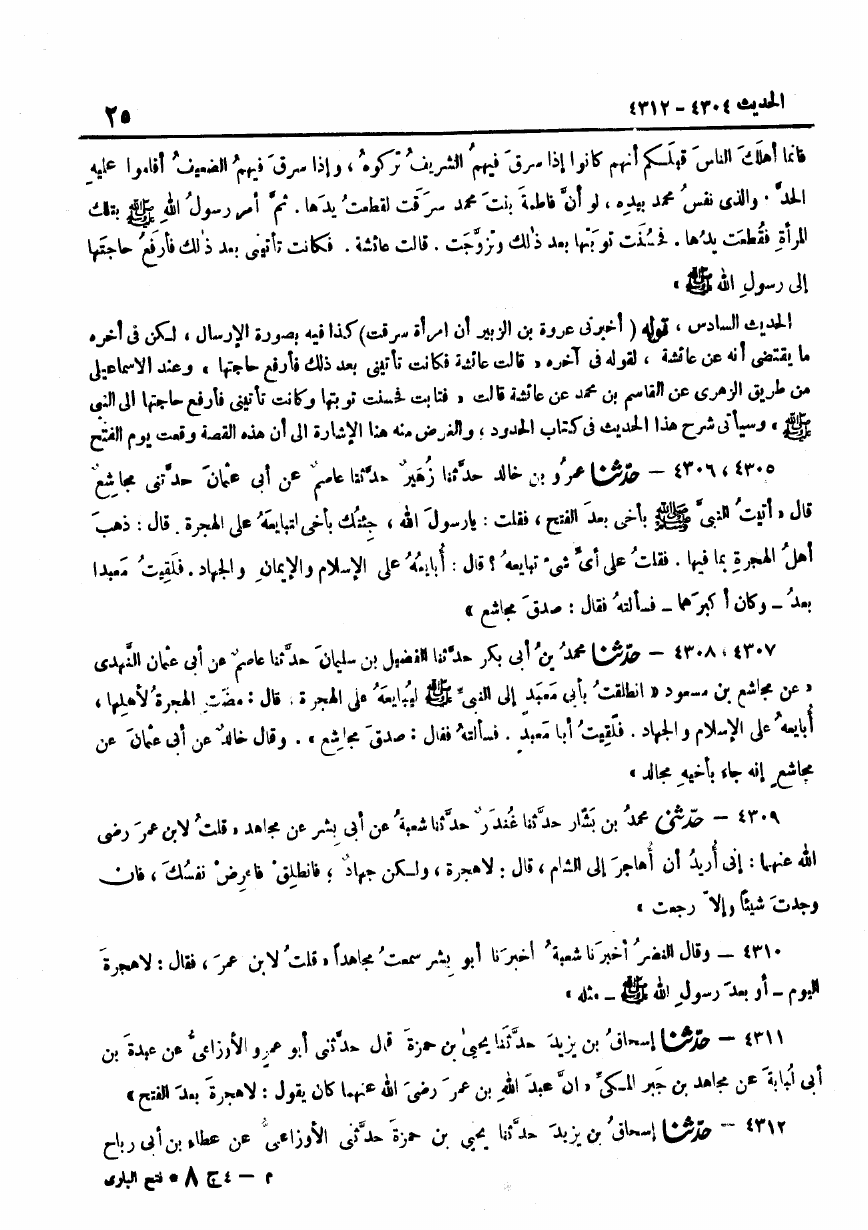 الحديث ٤٣٠٤ - ٤٣١٢
٢٥
فانما أهلكَ الناسَ قبلَكم أنهم كانوا إذا سرقَ فيهمُ الشريفُ تركوهُ ، وإذا سرقَ فيهمُ الضعيفُ أقاموا عليهِ
الحدَّ . والذى نفسُ محمد بيدِه ، لو أنَّ فاطمةَ بنتَ محمد سرقَت لقطعتُ يدَها . ثمَّ أمر رسولُ الله ﷺ بتلك
المرأةِ فقُطعَت يدُها . فحسُنَت توبتُها بعد ذٰلك وتزوَّجَت . قالت عائشة . فكانت تأتينى بعد ذٰلك فأرفَعُ حاجتَها
إلى رسولِ الله ﷺ »
الحديث السادس ، قوله ( أخبرنى عروة بن الزبير أن امرأة سرقت) كذا فيه بصورة الإرسال ، لكن فى آخره
ما يقتضى أنه عن عائشة ، لقوله فى آخره « قالت عائشة فكانت تأتينى بعد ذلك فأرفع حاجتها » وعند الاسماعيلى
من طريق الزهرى عن القاسم بن محمد عن عائشة قالت « فتابت فحسنت توبتها وكانت تأتينى فأرفع حاجتها الى النبى
ﷺ » وسيأتى شرح هذا الحديث فى كتاب الحدود ، والغرض منه هنا الإشارة الى أن هذه القصة وقعت يوم الفتح
٤٣٠٥ ، ٤٣٠٦ - حدّثنا عمرُو بن خالد حدَّثنا زُهَيرٌ حدَّثنا عاصمٌ عن أبى عثمانَ حدَّثنى مجاشِعٌ
قال « أتيتُ النبىَّ ﷺ بأخى بعدَ الفتح ، فقلت : يارسولَ الله ، جِئتُك بأخى لتبايعَهُ على الهجرة . قال : ذهبَ
أهلُ الهجرةِ بما فيها . فقلتُ على أىِّ شىءٍ تبايعهُ ؟ قال : أُبايعُهُ على الإسلام والإيمانِ والجهاد . فلَقِيتُ مَعبدا
بعدُ ـ وكان أكبرَهما ـ فسألتهُ فقال : صدقَ مجاشع »
٤٣٠٧ ، ٤٣٠٨ - حدّثنا محمدُ بنُ أبى بكر حدَّثنا الفضيل بن سليمانَ حدَّثنا عاصمٌ عن أبى عثمان النَّهدى
« عن مجاشع بن مسعود « انطلقتُ بأبى مَعبَدٍ إلى النبىِّ ﷺ ليُبايعَهُ على الهجرة . قال : مضَتِ الهجرةُ لأهلِها ،
أُبايعهُ على الإسلام والجهاد . فلَقِيتُ أبا مَعبدٍ . فسألتهُ فقال : صدقَ مجاشِع » . وقال خالدٌ عن أبى عثمانَ عن
مجاشع إنه جاء بأخيهِ مجالد »
٤٣٠٩ - حدّثنى محمدُ بن بَشّار حدَّثنا غُندَرٌ حدَّثنا شعبةُ عن أبى بِشر عن مجاهد « قلتُ لابن عمرَ رضى
الله عنهما : إنى أُريدُ أن أُهاجرَ إلى الشام ، قال : لاهجرة ، ولكن جهادٌ ؛ فانطلِقْ فاعرِضْ نفسَكَ ، فان
وجدتَ شيئاً وإلاّ رجعت »
٤٣١٠ - وقال النضرُ أخبرَنا شعبةُ أخبرَنا أبو بِشر سمعتُ مجاهداً « قلتُ لابن عمرَ ، فقال : لاهجرةَ
اليوم ـ أو بعدَ رسولِ الله ﷺ ـ مثله »
٤٣١١ - حدّثنا إسحاقُ بن يزيدَ حدَّثَنا يحيىٰ بن حمزةَ قال حدَّثنى أبو عمرٍو الأوزاعىُّ عن عبدةَ بن
أبى لُبابةَ عن مجاهد بن جَبر المكىِّ « انَّ عبدَ اللهِ بن عمرَ رضىَ الله عنهما كان يقول : لاهجرةَ بعدَ الفتح »
٤٣١٢ - حدّثنا إسحاقُ بن يزيدَ حدَّثنا يحيى بن حمزةَ حدثَّنى الأوزاعىُّ عن عطاء بن أبى رباح
م - ٤ ج ٨ * فتح البارى